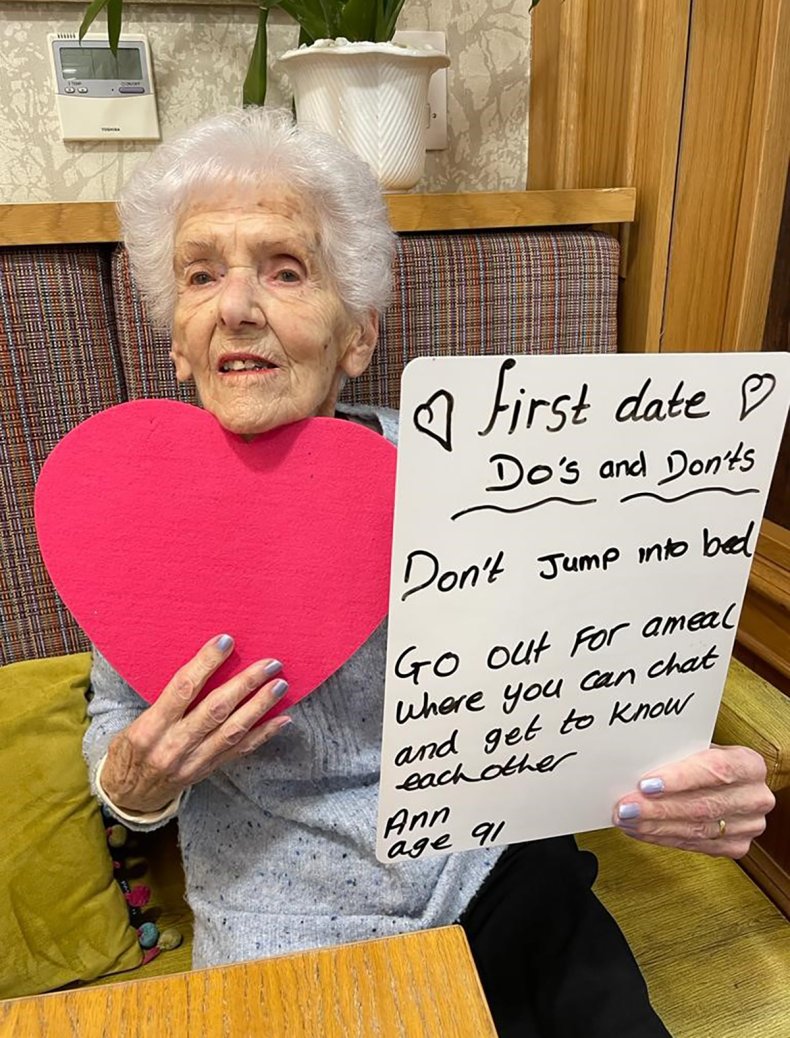 TOSHIBA
first date
Do's and Don'ts
Don't Jump into bed
Go out For a meal
where you can chat
and get to know
each other
Ann
age 91